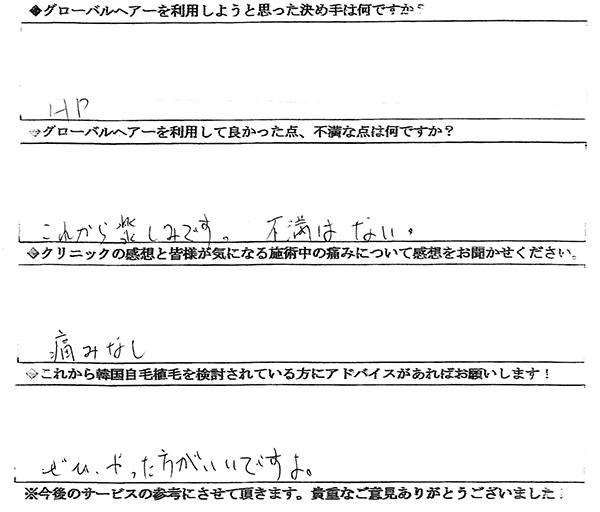 ◆グローバルヘアーを利用しようと思った決め手は何ですか？
HP
◆グローバルヘアーを利用して良かった点、不満な点は何ですか？
これから楽しみです。 不満はない。
◆クリニックの感想と皆様が気になる施術中の痛みについて感想をお聞かせください。
痛みなし
◆これから韓国自毛植毛を検討されている方にアドバイスがあればお願いします！
ぜひ、やった方がいいですよ。
※今後のサービスの参考にさせて頂きます。貴重なご意見ありがとうございました！